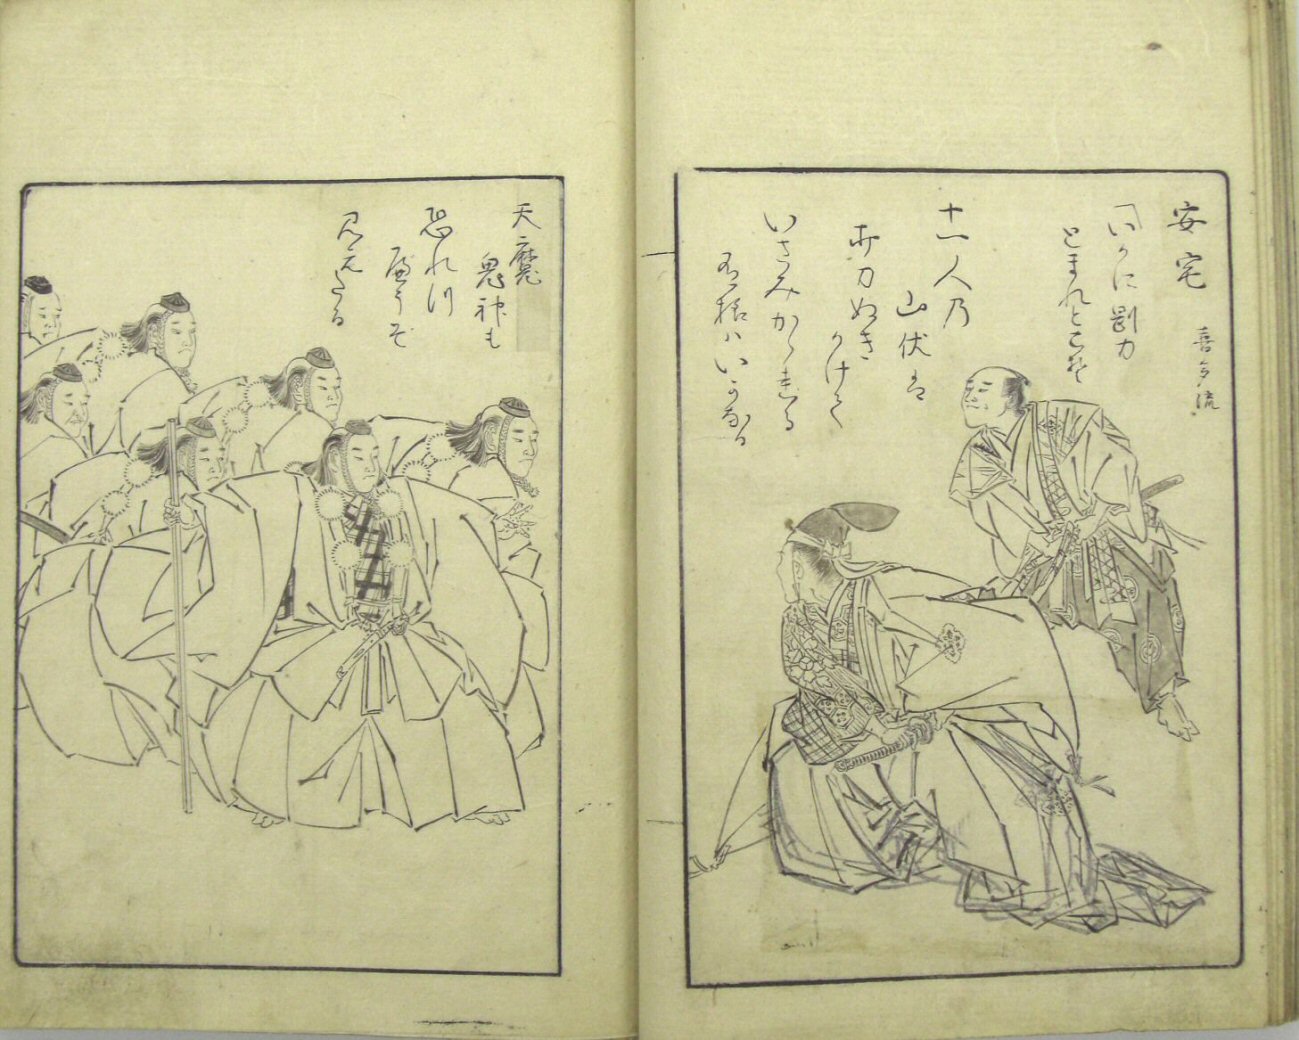 安宅
喜多流
「いかに剛力
とまれとこそ
十一人乃
山伏は
打刀ぬき
かけて
いさみかゝれる
有様ハいかなる
天魔
鬼神も
恐れつ
べうぞ
見えたる